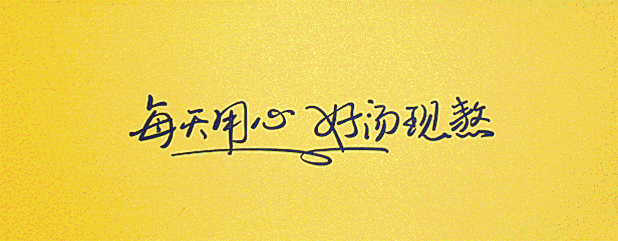 每天用心 好汤现熬